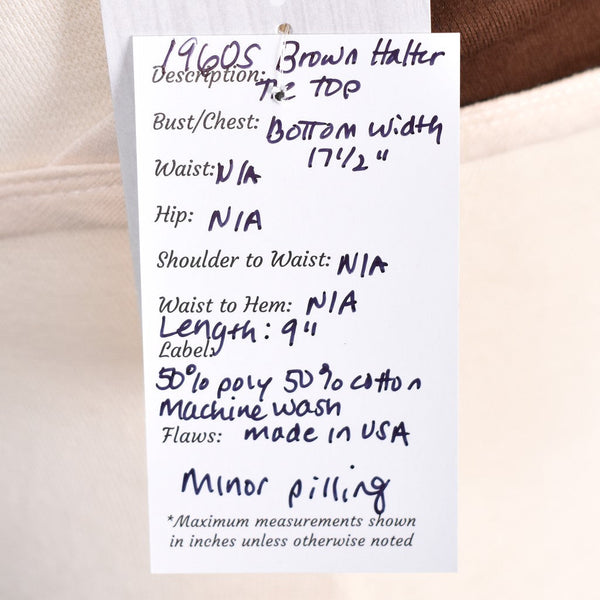 1960s Brown Halter
Description: Tie TOP
Bust/Chest: Bottom width
17 1/2"
Waist: N/A
Hip: N/A
Shoulder to Waist: N/A
Waist to Hem: N/A
Length: 9"
Label:
50% poly 50% cotton
Machine wash
Flaws: made in USA
Minor pilling
*Maximum measurements shown
in inches unless otherwise noted